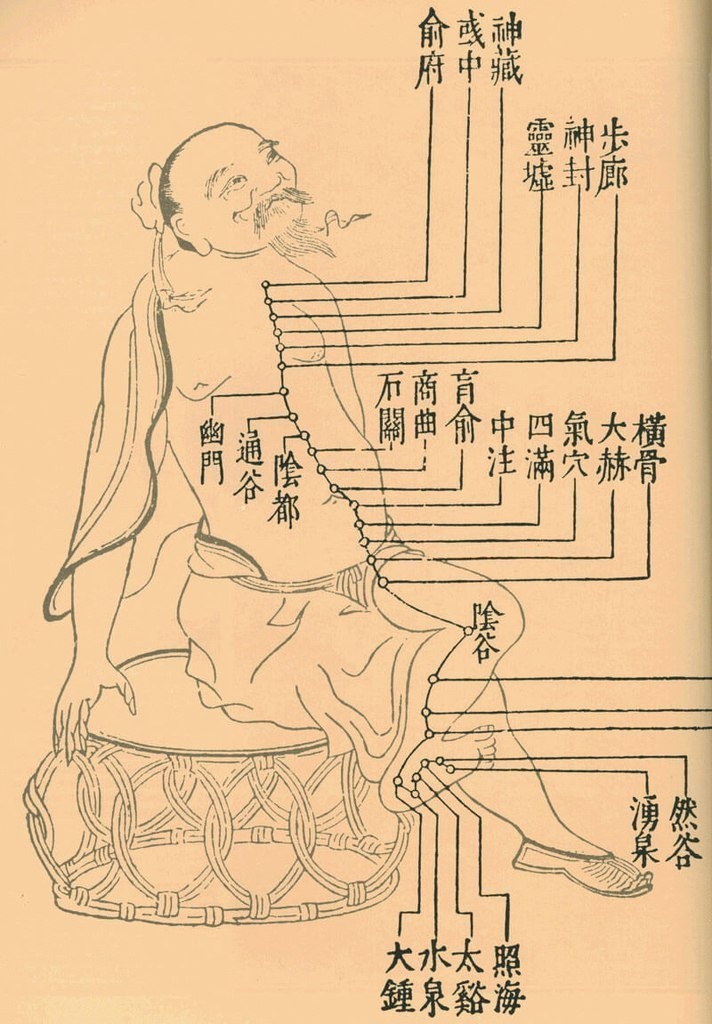 神藏
彧中
俞府
步廊
神封
靈墟
肓俞
商曲
石關
橫骨
大赫
氣穴
四滿
中注
幽門
通谷
陰都
陰谷
然谷
湧泉
照海
太谿
水泉
大鍾